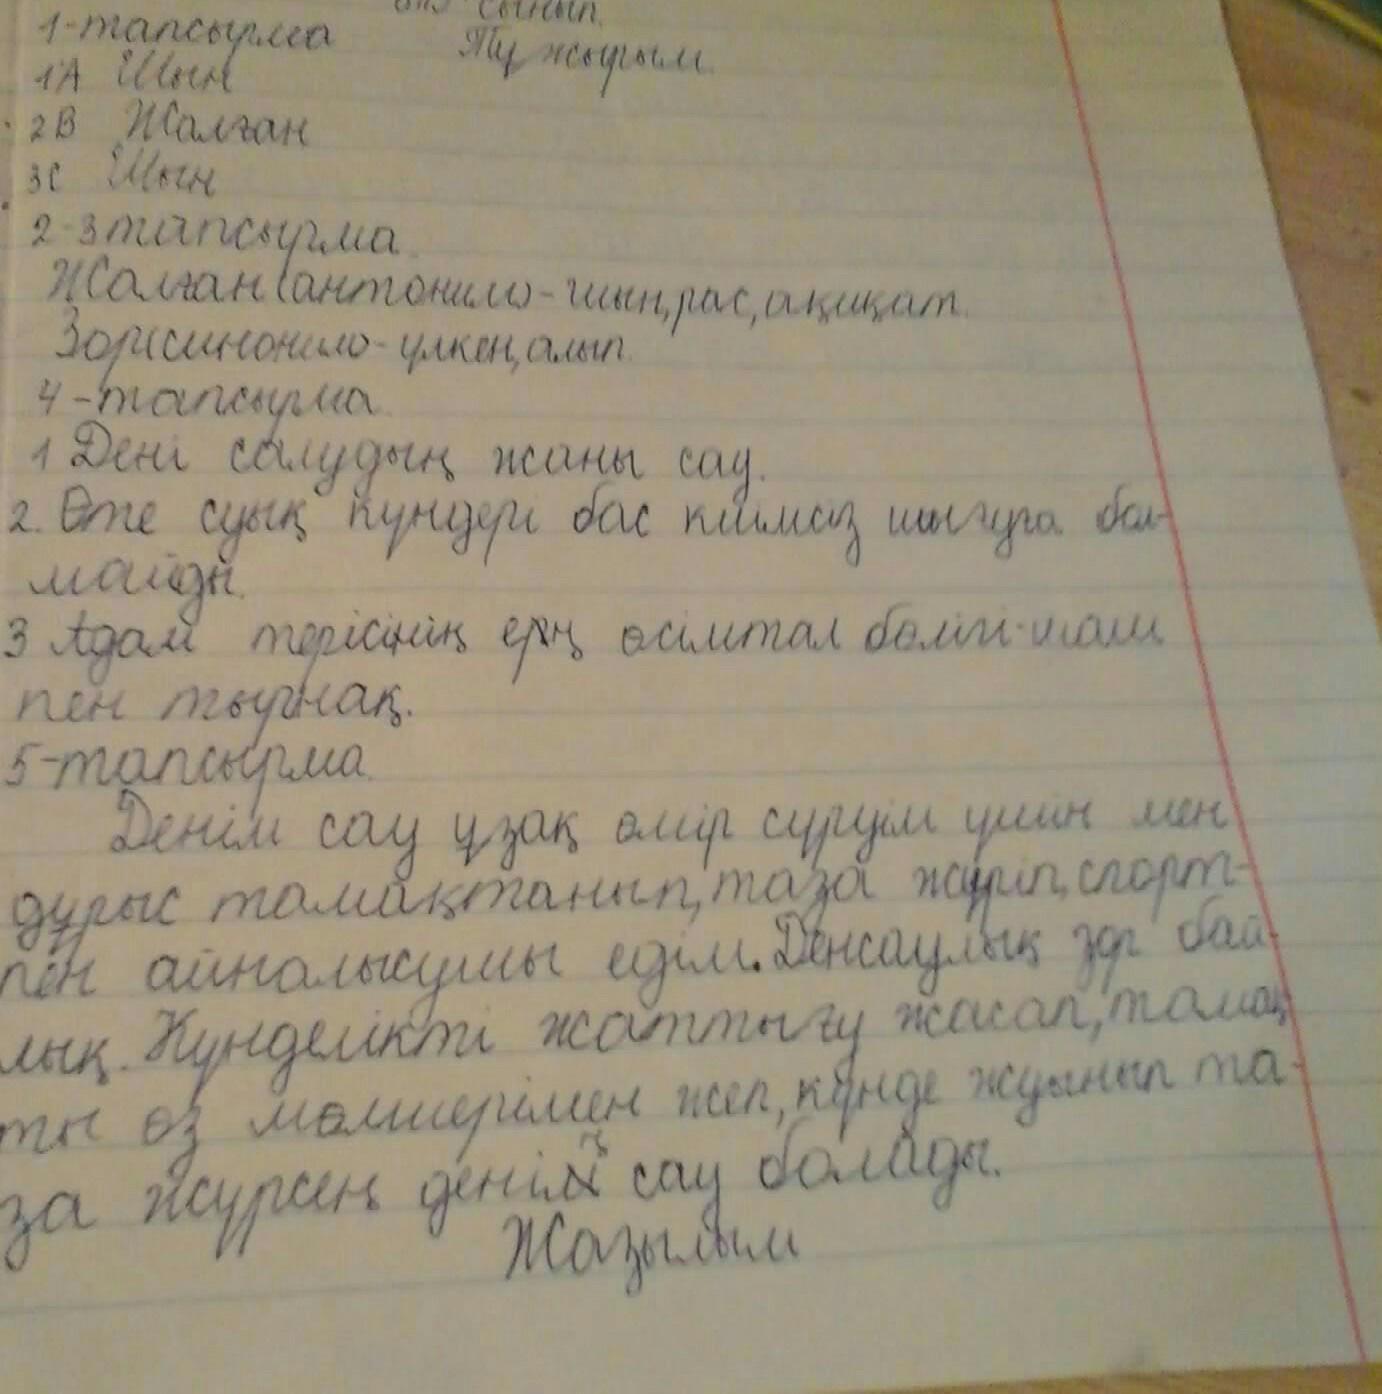 сынып.
1-тапсырма Тұжырым.
1A Шын
2В Жалған
3С Шын
2-3 тапсырма.
Жалған (антоним) - шын, рас, ақиқат.
Зор (синоним) - үлкен, алып.
4-тапсырма.
1 Дені салудың жаны сау.
2. Өте суық күндері бас киімсіз шығуға бол-
майды.
3 Адам терісінің ең өсімтал бөлігі-шаш
пен тырнақ.
5-тапсырма.
Денім сау ұзақ өмір сүруім үшін мен
дұрыс тамақтанып, таза жүріп, спорт-
пен айналысушы едім. Денсаулық зор бай-
лық. Күнделікті жаттығу жасап, тамақ
ты өз мөлшерімен жеп, күнде жуынып та-
за жүрсең денің сау болады.
Жазылым